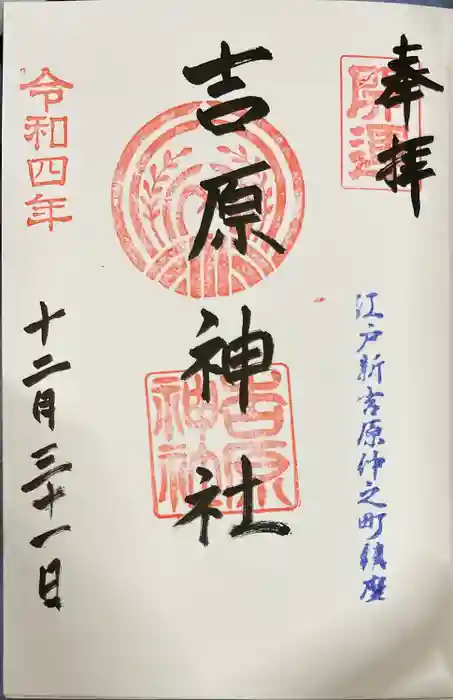 奉拝
開運
江戸新吉原仲之町鎮座
吉原神社
吉原神社
令和四年
十二月三十一日